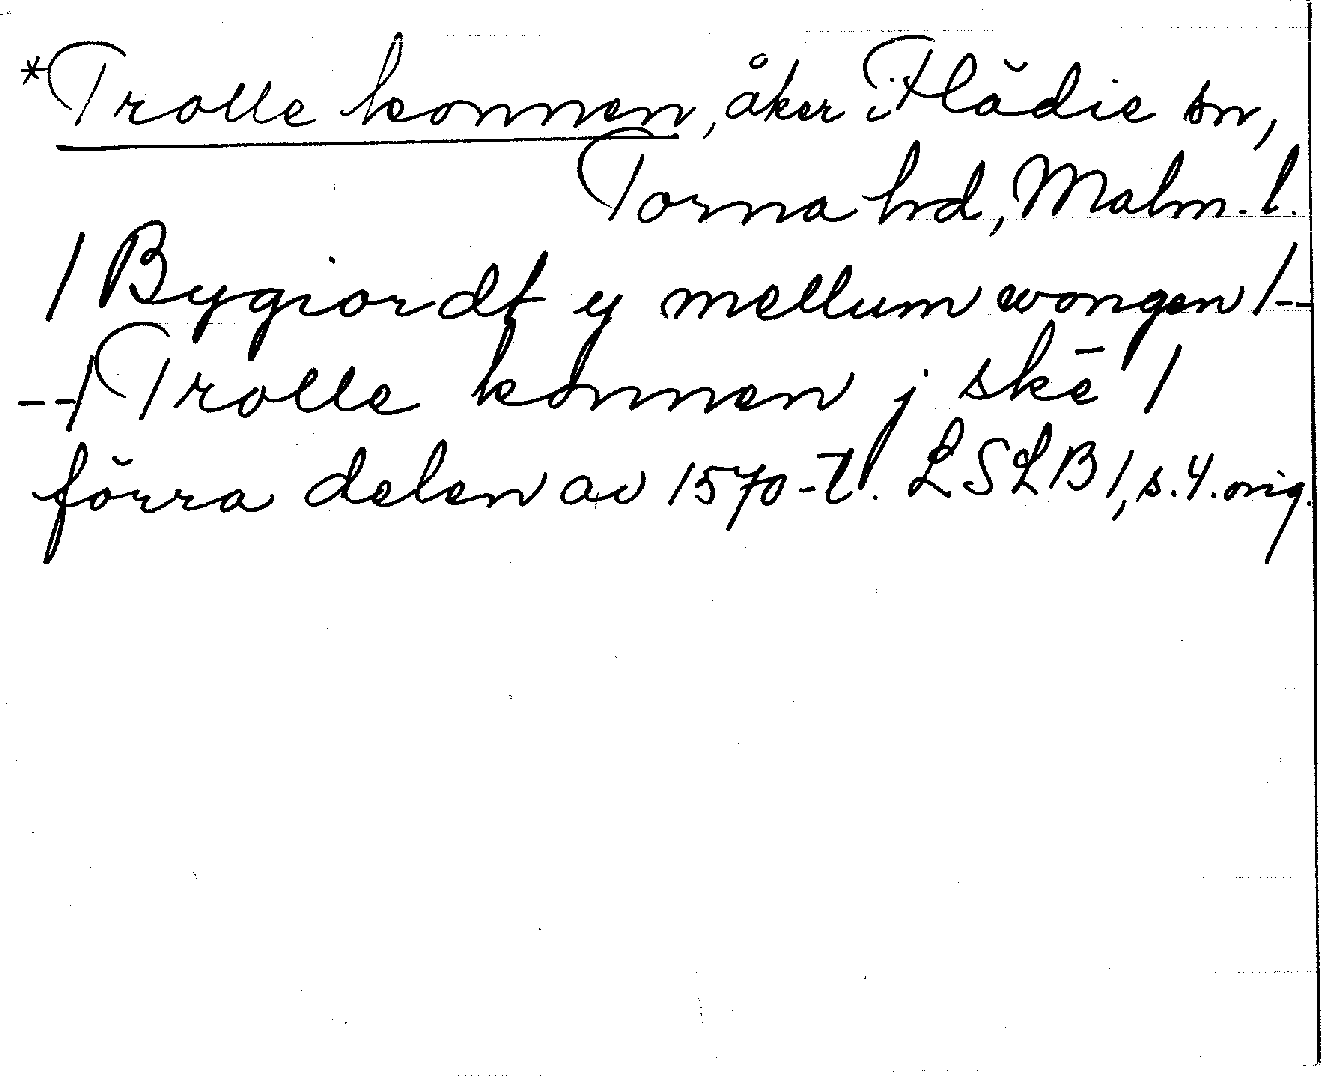 *Trolle konnen, åker i Flädie sn,
Torna hd, Malm. l.
/ Bygiordt y mellum wongen / --
-- / Trolle konnen j skē /
förra delen av 1570-t. LSLB 1, s. 4. orig.